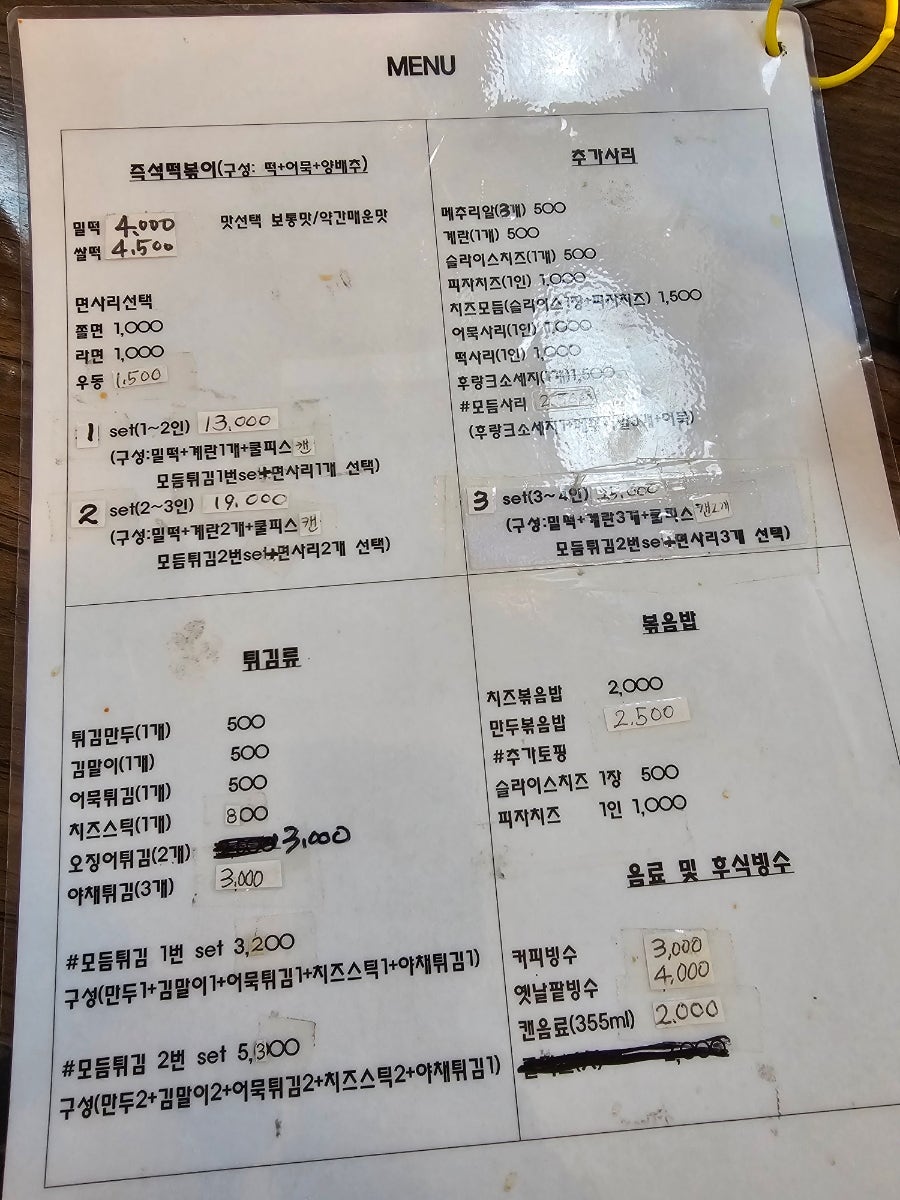 MENU
즉석떡볶이(구성: 떡+어묵+양배추)
밀떡 4,000 맛선택 보통맛/약간매운맛
쌀떡 4,500
면사리선택
쫄면 1,000
라면 1,000
우동 1,500
1 set(1~2인) 13,000
(구성:밀떡+계란1개+쿨피스캔
모듬튀김1번set+면사리1개 선택)
2 set(2~3인) 19,000
(구성:밀떡+계란2개+쿨피스캔
모듬튀김2번set+면사리2개 선택)
추가사리
메추리알(3개) 500
계란(1개) 500
슬라이스치즈(1개) 500
피자치즈(1인) 1,000
치즈모듬(슬라이스1장+피자치즈) 1,500
어묵사리(1인) 1,000
떡사리(1인) 1,000
후랑크소세지(1개)1,500
#모듬사리
(후랑크소세지1+
3 set(3~4인)
(구성:밀떡+계란3개+쿨피스캔2개
모듬튀김2번set+면사리3개 선택)
튀김류
튀김만두(1개) 500
김말이(1개) 500
어묵튀김(1개) 500
치즈스틱(1개) 800
오징어튀김(2개) 3,000
야채튀김(3개) 3,000
#모듬튀김 1번 set 3,200
구성(만두1+김말이1+어묵튀김1+치즈스틱1+야채튀김1)
#모듬튀김 2번 set 5,300
구성(만두2+김말이2+어묵튀김2+치즈스틱2+야채튀김1)
볶음밥
치즈볶음밥 2,000
만두볶음밥 2,500
#추가토핑
슬라이스치즈 1장 500
피자치즈 1인 1,000
음료 및 후식빙수
커피빙수 3,000
옛날팥빙수 4,000
캔음료(355ml) 2,000